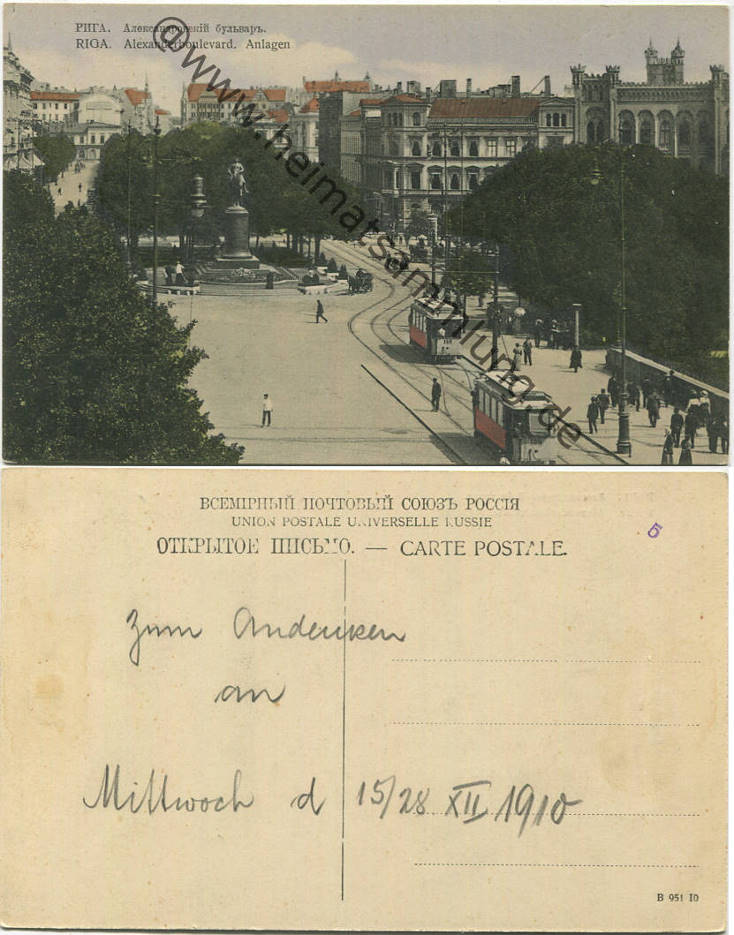 РИГА. Александровскій бульваръ.
RIGA. Alexanderboulevard. Anlagen
@www.heimatsammlung.de
ВСЕМІРНЫЙ ПОЧТОВЫЙ СОЮЗЪ РОССІЯ
UNION POSTALE UNIVERSELLE RUSSIE
5
ОТКРЫТОЕ ПИСЬМО. — CARTE POSTALE.
Zum Andenken
an
Mittwoch d 15/28 XII 1910
B 951 10